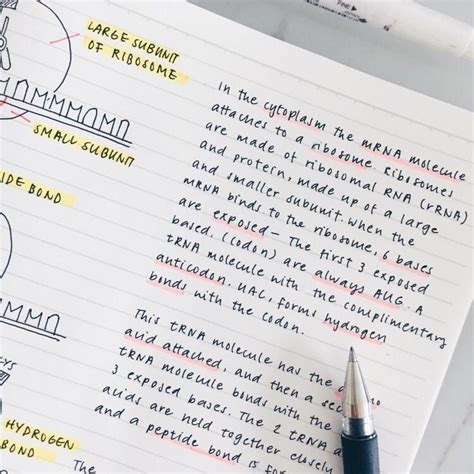 LARGE SUBUNIT
OF RIBOSOME
SMALL SUBUNIT
IDE BOND
HYDROGEN
BOND
The
In the cytoplasm the mRNA molecule
attaches to a ribosome. Ribosomes
are made of ribosomal RNA (rRNA)
and protein, made up of a large
and smaller subunit. When the
mRNA binds to the ribosome, 6 bases
are exposed – The first 3 exposed
bases. (codon) are always AUG. A
tRNA molecule with the complimentary
anticodon. UAC, forms hydrogen
bonds with the codon.
This tRNA molecule has the
acid attached, and then a
tRNA molecule bonds with the
3 exposed bases. The 2 tRNA
acids are held together closely
and a peptide bond is